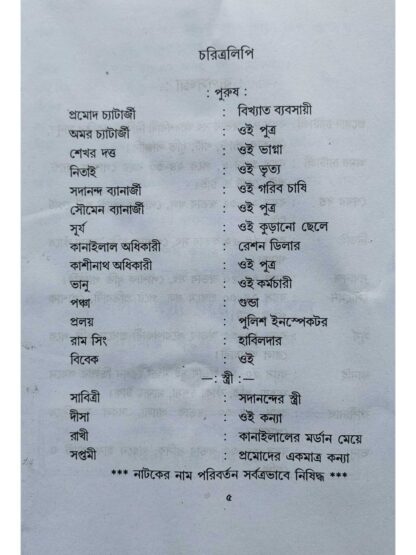 চরিত্রলিপি
: পুরুষ :
প্রমোদ চ্যাটার্জী : বিখ্যাত ব্যবসায়ী
অমর চ্যাটার্জী : ওই পুত্র
শেখর দত্ত : ওই ভাগ্না
নিতাই : ওই ভৃত্য
সদানন্দ ব্যানার্জী : ওই গরিব চাষি
সৌমেন ব্যানার্জী : ওই পুত্র
সূর্য : ওই কুড়ানো ছেলে
কানাইলাল অধিকারী : রেশন ডিলার
কাশীনাথ অধিকারী : ওই পুত্র
ভানু : ওই কর্মচারী
পঞ্চা : গুন্ডা
প্রলয় : পুলিশ ইনস্পেকটর
রাম সিং : হাবিলদার
বিবেক : ওই
—: স্ত্রী :—
সাবিত্রী : সদানন্দের স্ত্রী
দীসা : ওই কন্যা
রাখী : কানাইলালের মর্ডান মেয়ে
সপ্তমী : প্রমোদের একমাত্র কন্যা
*** নাটকের নাম পরিবর্তন সর্বত্রভাবে নিষিদ্ধ ***
৫